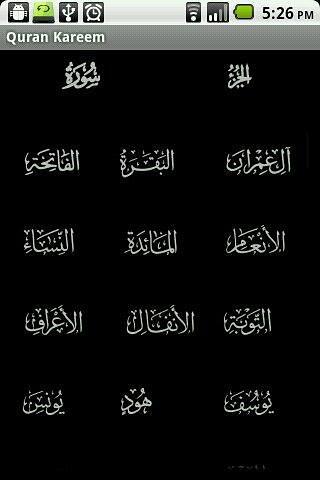 5:26 PM
Quran Kareem
سُورَةُ
الجُزْءُ
الفَاتِحَة
البَقَرَة
آل عِمْرَان
النِّسَاء
المَائِدَة
الأَنْعَام
الأَعْرَاف
الأَنْفَال
التَّوْبَة
يُونِسَ
هُودٍ
يُوسُفَ